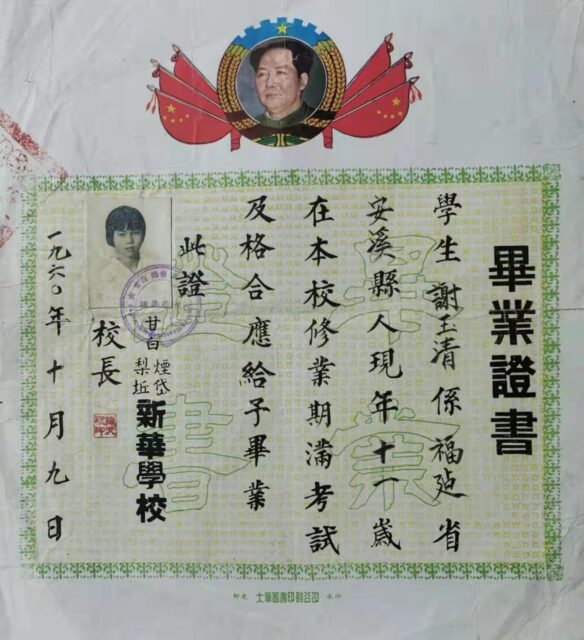 畢業證書
學生謝玉清係福建省
安溪縣人現年十一歲
在本校修業期滿考試
及格合應給予畢業
此證
甘白煙岱
梨坵
新華學校
校長
一九六〇年十月九日
畢業
證書